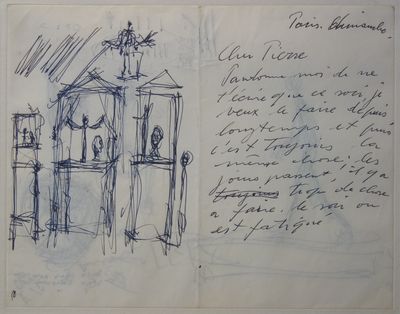 Paris. Dimanche.
Cher Pierre
Pardonne moi de ne
t'écrire que ce soir, je
veux le faire depuis
longtemps et puis
c'est toujours la
même chose, les
jours passent, il y a
trop de choses
à faire. le soir on
est fatigué